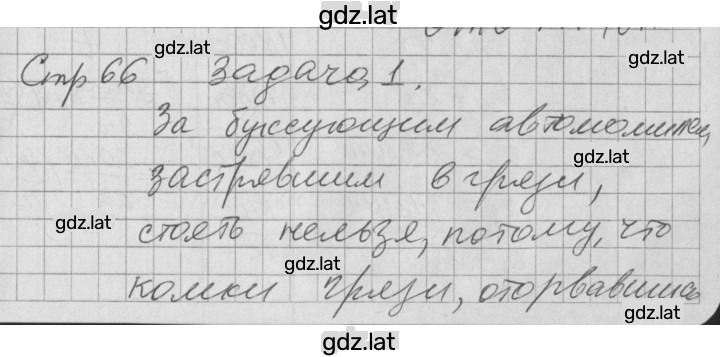 gdz.lat
gdz.lat
gdz.lat
Стр 66 Задача 1.
За буксующим автомобилем,
gdz.lat
застрявшим в грязи,
gdz.lat
стоять нельзя, потому, что
gdz.lat
комки грязи, оторвавшись
gdz.lat
gdz.lat